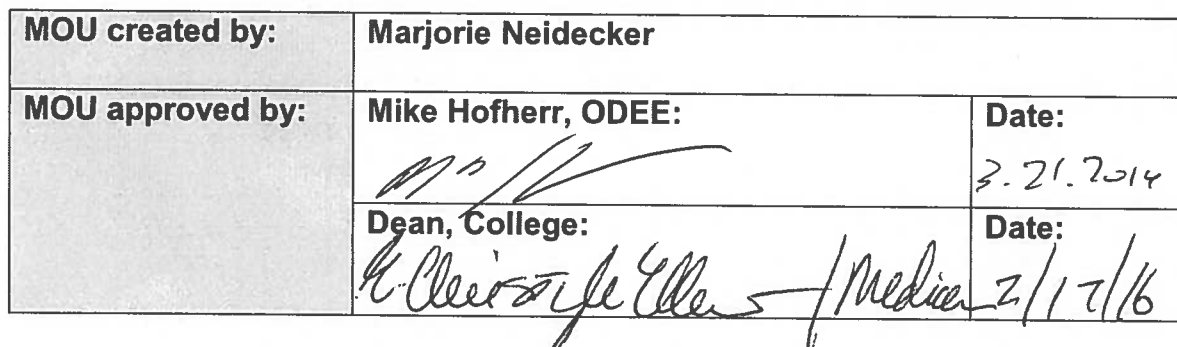 MOU created by: Marjorie Neidecker
MOU approved by: Mike Hofherr, ODEE: Date:
3.21.2014
Dean, College: Date:
2/17/16